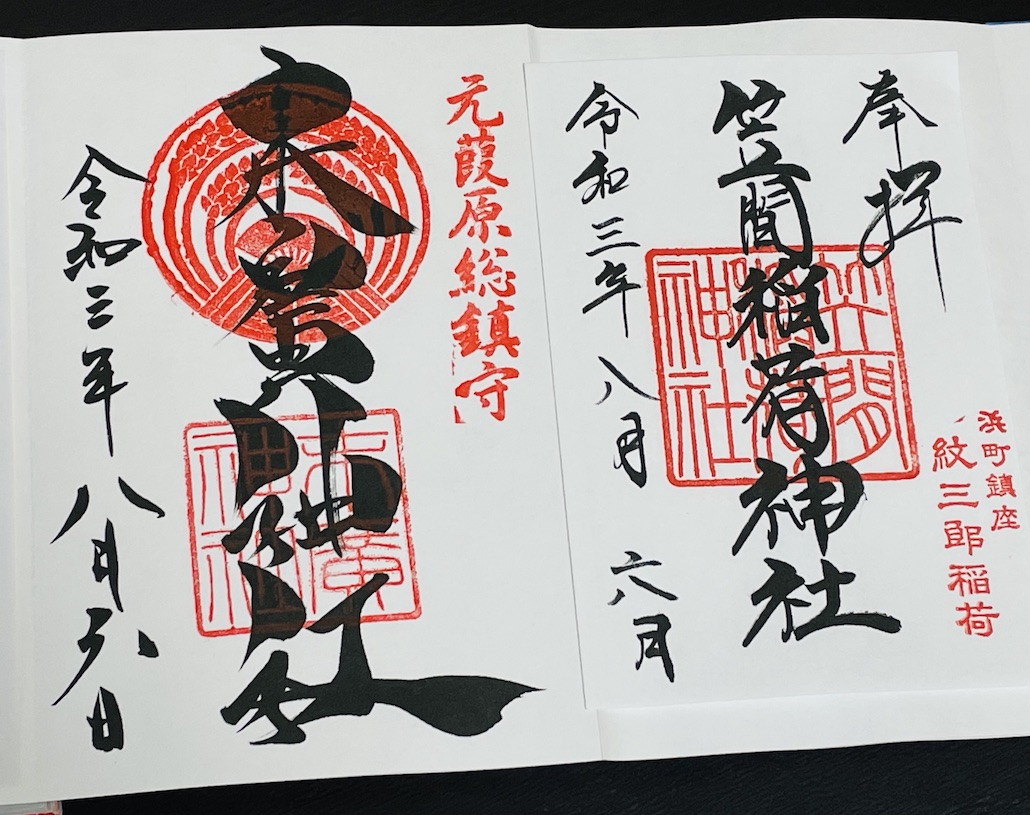 奉拝
笠間稲荷神社
笠間
稲荷
神社
浜町鎮座
紋三郎稲荷
令和三年八月六月
元葭原総鎮守
末廣神社
末廣
神社
令和三年八月六日